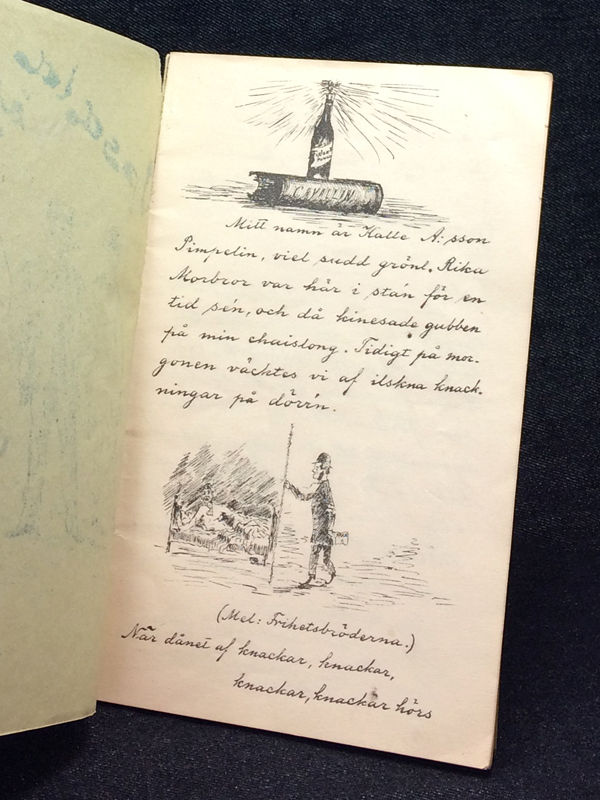 CAVALLIN
Mitt namn är Kalle A:sson
Pimpelin, viel sudd grönl. Rika
Morbror var här i stán för en
tid sén, och då kinesade gubben
på min chaislong. Tidigt på mor-
gonen väcktes vi af ilskna knack-
ningar på dörrn.
(Mel: Frihetsbröderna.)
När dånet af knackar, knackar,
knackar, knackar hörs